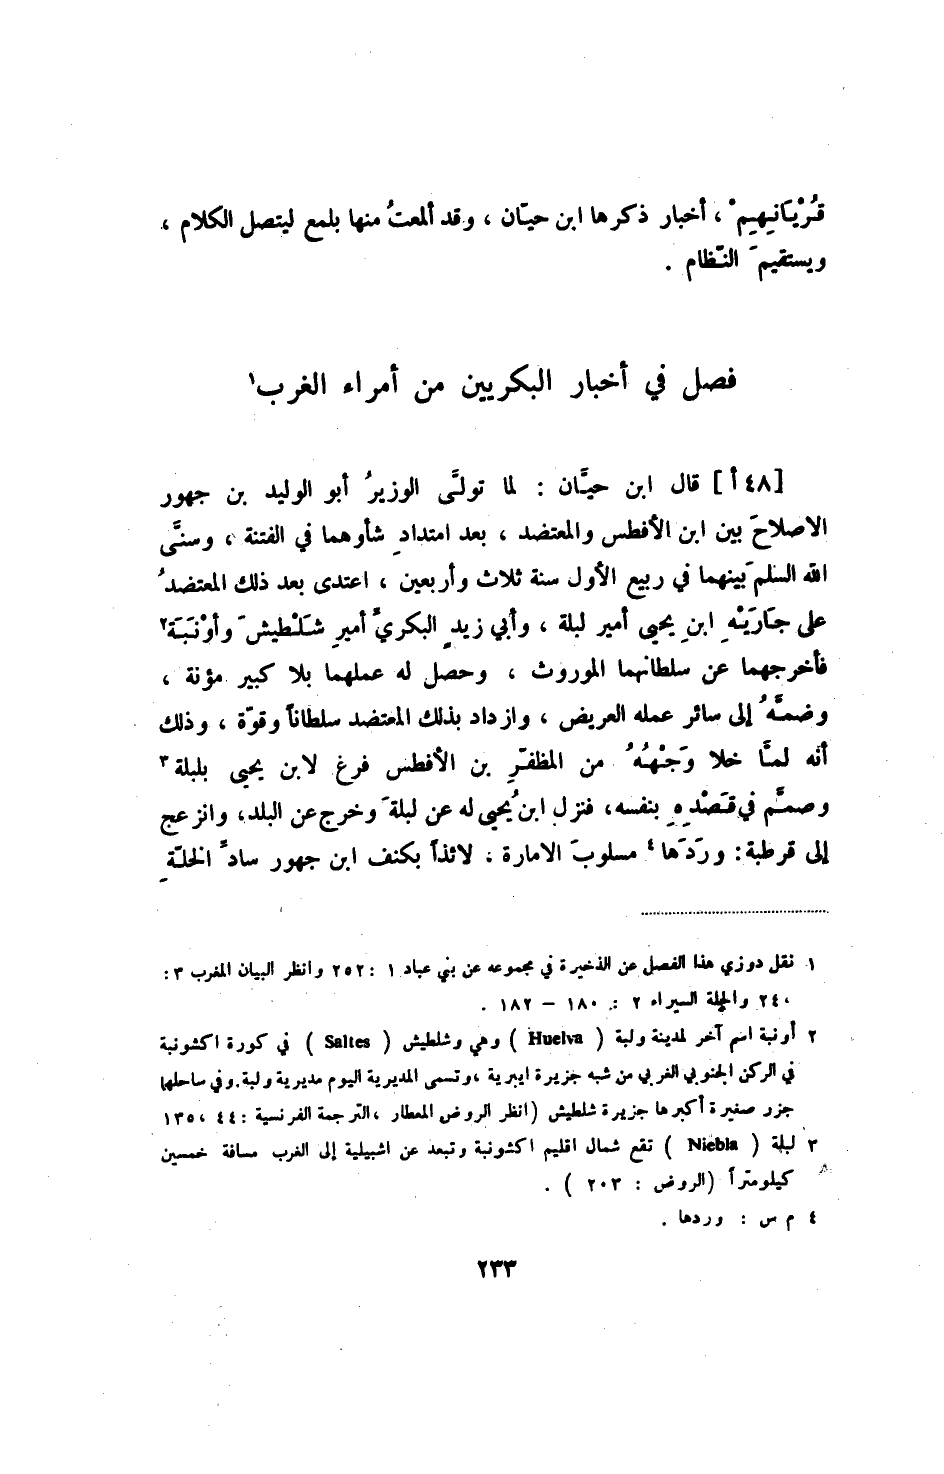 قُرْيَانِهِمْ ، أخبار ذكرها ابن حيّان ، وقد ألمعتُ منها بلمع ليتصل الكلام ،
ويستقيمَ النّظام .
فصل في أخبار البكريين من أمراء الغرب١
[٤٨أ] قال ابن حيَّان : لما تولَّى الوزيرُ أبو الوليد بن جهور
الاصلاحَ بين ابن الأفطس والمعتضد ، بعد امتدادِ شأوهما في الفتنة ، وسنَّى
الله السلمَ بينهما في ربيع الأول سنة ثلاث وأربعين ، اعتدى بعد ذلك المعتضدُ
على جَارَيْهِ ابنِ يحيى أمير لبلة ، وأبي زيدٍ البكريِّ أميرِ شَلْطِيشَ وأَوْنَبَةَ٢
فأخرجهما عن سلطانهما الموروث ، وحصل له عملهما بلا كبير مؤنة ،
وضمَّهُ إلى سائر عمله العريض ، وازداد بذلك المعتضد سلطاناً وقوّة ، وذلك
أنه لمّا خلا وَجْهُهُ من المظفّرِ بن الأفطس فرغ لابن يحيى بلبلة٣
وصمَّم في قَصْدِهِ بنفسه، فنزل ابنُ يحيى له عن لبلةَ وخرج عن البلد، وانزعج
إلى قرطبة: ورَدَها٤ مسلوبَ الامارة ، لائذاً بكنف ابن جهور سادِّ الخلّةِ
١ نقل دوزي هذا الفصل عن الذخيرة في مجموعه عن بني عباد ١ : ٢٥٢ وانظر البيان المغرب ٣ :
٢٤٠ والحلة السيراء ٢ : ١٨٠ – ١٨٢ .
٢ أونبة اسم آخر لمدينة ولبة ( Huelva ) وهي وشلطيش ( Saltes ) في كورة اكشونبة
في الركن الجنوبي الغربي من شبه جزيرة ايبرية ، وتسمى المديرية اليوم مديرية ولبة . وفي ساحلها
جزر صغيرة أكبرها جزيرة شلطيش (انظر الروض المعطار ، الترجمة الفرنسية : ٤٤ ، ١٣٥
٣ لبلة ( Niebla ) تقع شمال اقليم اكشونبة وتبعد عن اشبيلية إلى الغرب مسافة خمسين
كيلومتراً (الروض : ٢٠٣ ) .
٤ م س : وردها .
٢٣٣